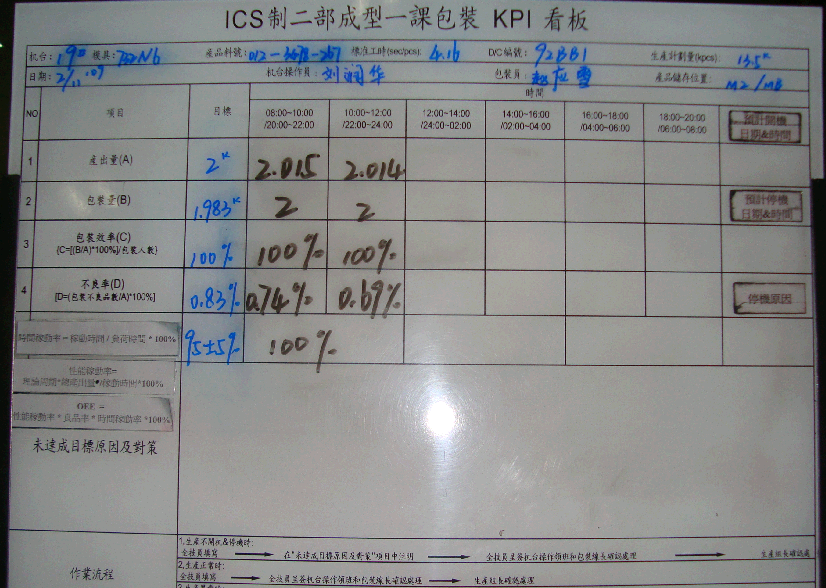 ICS制二部成型一課包裝 KPI 看板
机台: 190 模具: 產品料號: 012-3678-267 標准工時(sec/pcs): 4.16 D/C編號: 92BB1 生產計劃量(kpcs): 13.5K
日期: 2/11 '09 机台操作員: 刘润华 包裝員: 產品儲存位置: M2/MB
NO 項目 目標 時間
08:00~10:00 /20:00~22:00 10:00~12:00 /22:00~24:00 12:00~14:00 /24:00~02:00 14:00~16:00 /02:00~04:00 16:00~18:00 /04:00~06:00 18:00~20:00 /06:00~08:00
預計開機
日期&時間
1 產出量(A) 2K 2.015 2.014
2 包裝量(B) 1.983K 2 2
預計停機
日期&時間
3 包裝效率(C) 100% 100% 100%
{C=[(B/A)*100%]/包裝人數}
4 不良率(D) 0.83% 0.74% 0.69%
[D=(包裝不良品數/A)*100%]
停機原因
時間稼動率=稼動時間/負荷時間*100% 95±5% 100%
性能稼動率=
理論周期*總產出量*/稼動時間*100%
OEE =
性能稼動率*良品率*時間稼動率*100%
未達成目標原因及對策
作業流程
1.生產不開機&停機時:
全技員填寫 在"未達成目標原因及對策"項目中注明 全技員呈簽机台操作領班和包裝線長確認處理 生產組長確認處
2.生產正常時:
全技員填寫 全技員呈簽机台操作領班和包裝線長確認處理 生產組長確認處理